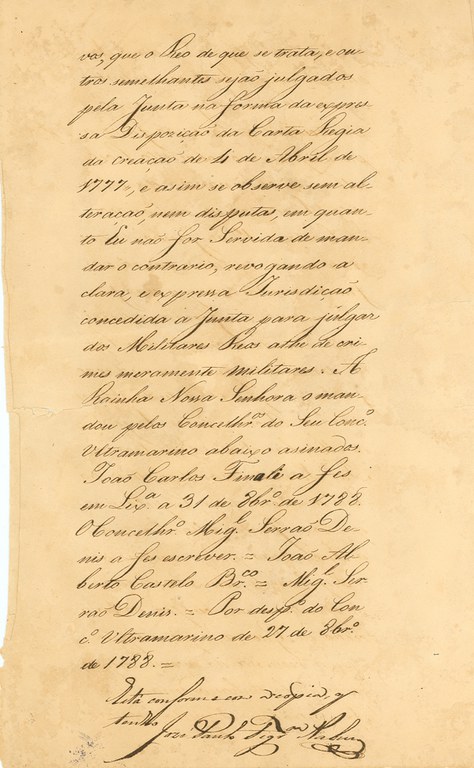 vos, que o Reo de que se trata, e ou-
tros semelhantes sejaõ julgados
pela Junta na forma da expres-
sa Dispoziçaõ da Carta Regia
da criaçaõ de 4 de Abril de
1777, e asim se observe sem al-
teracaõ, nem disputas, em quan-
to Eu naõ for Servida de man-
dar o contrario, revogando a
clara, e expressa Jurisdicaõ
concedida á Junta para julgar
dos Militares Reos athe de cri-
mes meramente militares. A
Rainha Nossa Senhora o man-
dou pelos Concelhr.os do Seu Conc.o
Ultramarino abaixo asinados.
Joaõ Carlos Finali a fes
em Lix.a a 31 de 8br.o de 1788.
O Concelhr.o Mig.l Serraõ De-
nis a fes escrever. = Joaõ Al-
berto Castelo Br.co = Mig.l Ser-
raõ Denis. = Por desp.o do Con-
c.o Ultramarino de 27 de 8br.o
de 1788. =
Está conforme com a copia, q
tenho
Joze Paulo